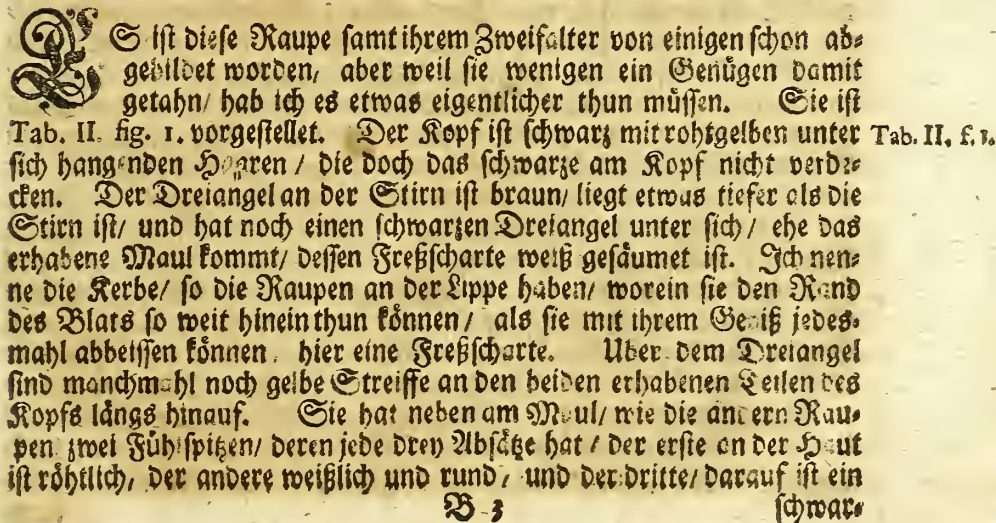 ES ist diese Raupe samt ihrem Zweifalter von einigen schon ab-
gebildet worden, aber weil sie wenigen ein Genügen damit
getahn/ hab ich es etwas eigentlicher thun müssen. Sie ist
Tab. II. fig. 1. vorgestellet. Der Kopf ist schwarz mit rohtgelben unter
Tab. II. f. 1.
sich hangenden Haaren / die doch das schwarze am Kopf nicht verde-
cken. Der Dreiangel an der Stirn ist braun/ liegt etwas tiefer als die
Stirn ist/ und hat noch einen schwarzen Dreiangel unter sich/ ehe das
erhabene Maul kommt/ dessen Freßscharte weiß gesäumet ist. Ich nen-
ne die Kerbe/ so die Raupen an der Lippe haben/ worein sie den Rand
des Blats so weit hinein thun können/ als sie mit ihrem Gebiß jedes-
mahl abbeissen können, hier eine Freßscharte. Uber dem Dreiangel
sind manchmahl noch gelbe Streiffe an den beiden erhabenen Teilen des
Kopfs längs hinauf. Sie hat neben am Maul/ wie die andern Rau-
pen zwei Fühlspitzen/ deren jede drey Absätze hat / der erste an der Haut
ist röhtlich, der andere weißlich und rund, und der dritte/ darauf ist ein
B 3
schwar-